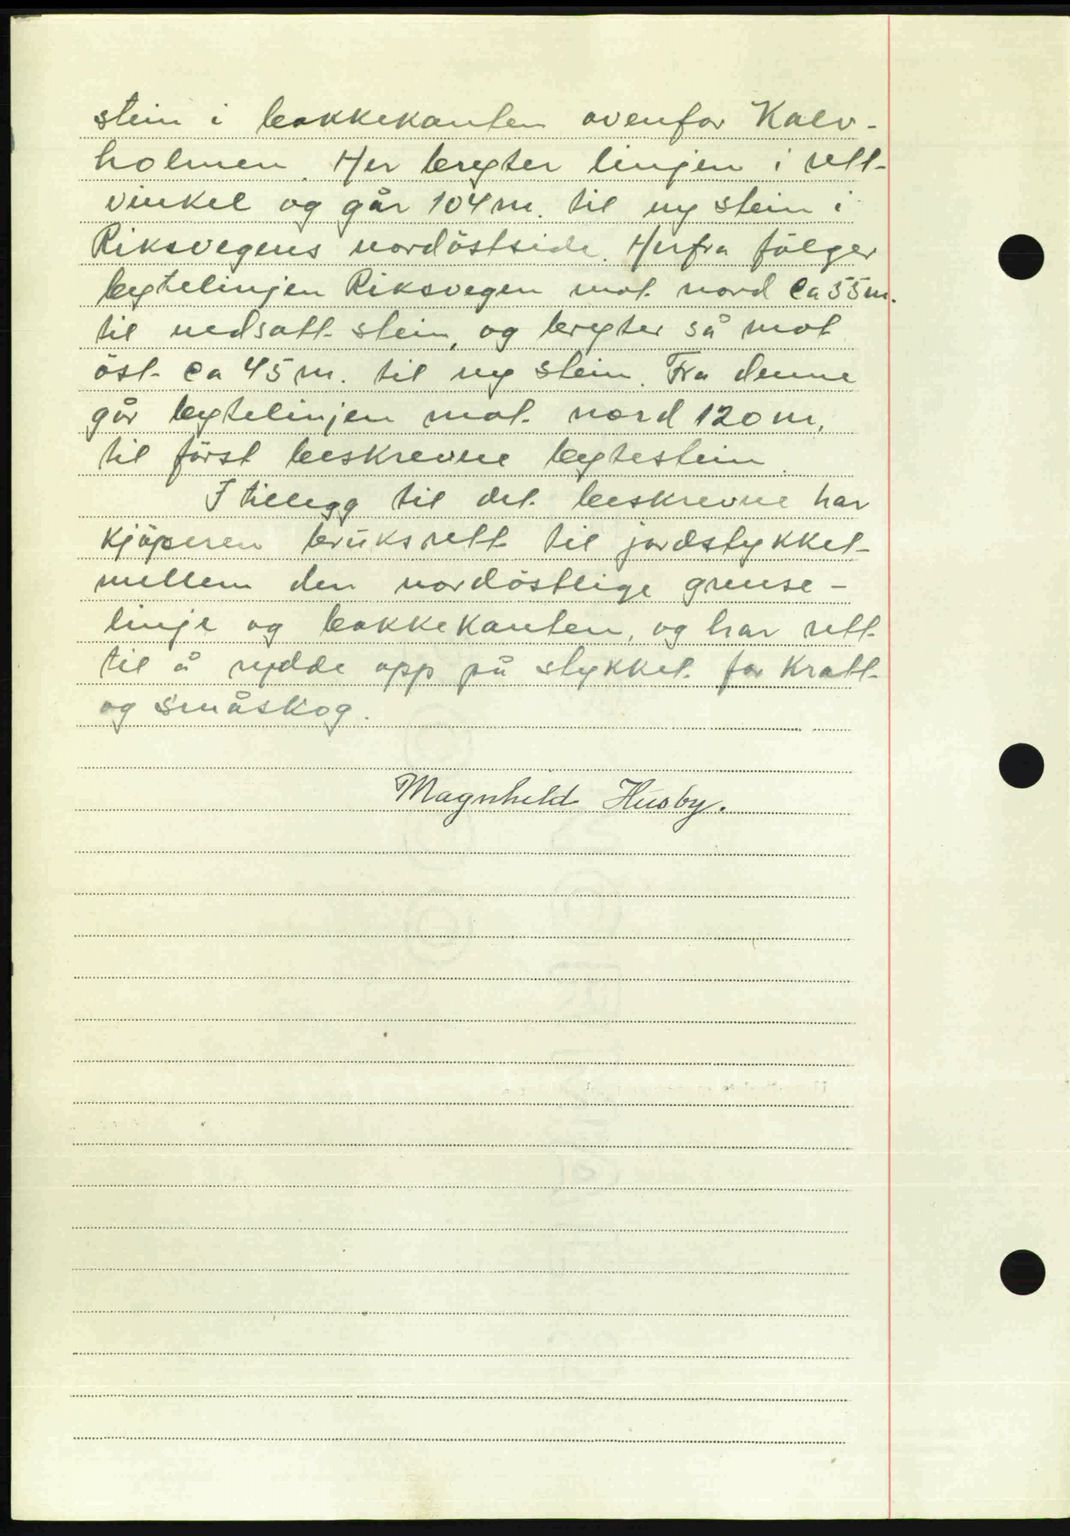 stein i bakkekanten ovenfor Kalv-
holmen. Her bryter linjen i rett-
vinkel og går 104 m. til ny stein i
Riksvegens nordöstside. Herfra fölger
bytelinjen Riksvegen mot nord ca 55 m.
til nedsatt stein, og bryter så mot
öst ca 45 m. til ny stein. Fra denne
går bytelinjen mot nord 120 m,
til först beskrevne bytestein.
I tillegg til det beskrevne har
kjöperen bruksrett til jordstykket
mellem den nordöstlige grense-
linje og bakkekanten, og har rett
til å rydde opp på stykket for kratt
og småskog.
Magnhild Husby.